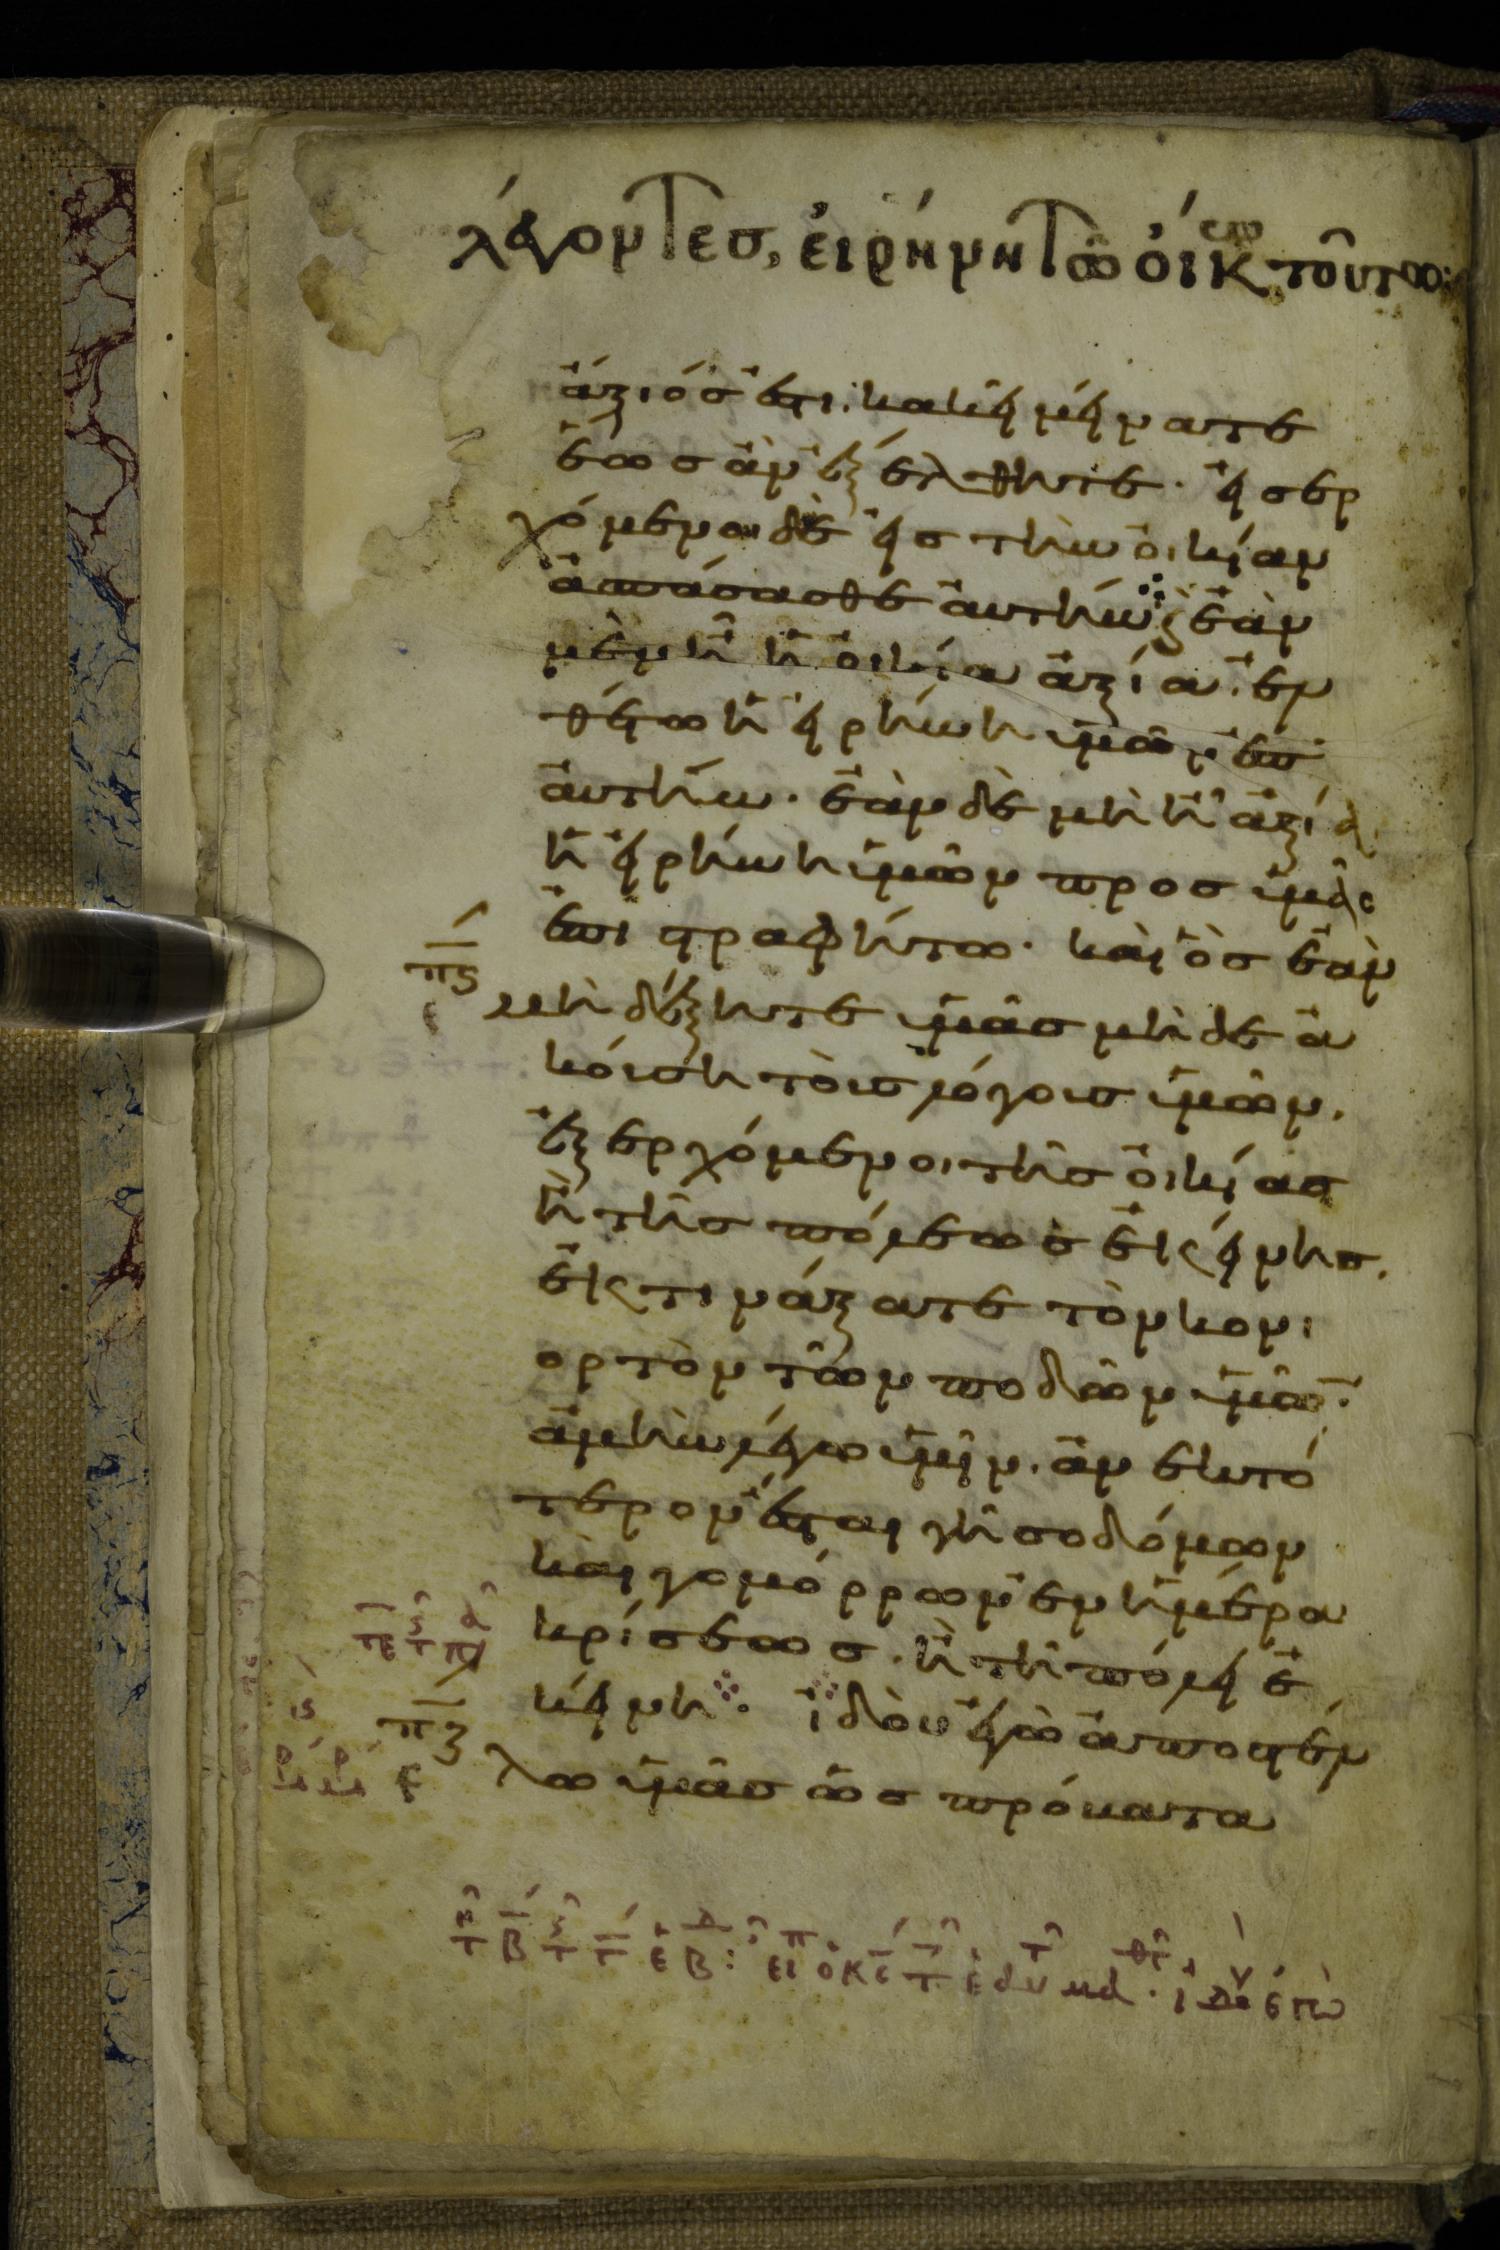 λέγοντεσ, εἰρήνη τῶ οἴκω τούτω:
ἄξιόσ ἐστι. κακεῖ μείνατε
ἕωσ ἂν ἐξέλθητε· εἰσερ
χόμενοι δὲ εἰσ τὴν οἰκίαν
ἀσπάσασθε αὐτήν· ἐὰν
μὲν ἦ ἡ οἰκία ἀξία. ἐλ
θέτω ἡ εἰρήνη ὑμῶν ἐπ
αὐτήν· ἐὰν δὲ μὴ ἦ ἀξία.
ἡ εἰρήνη ὑμῶν προσ ὑμᾶς
ἐπιστραφήτω· καὶ ὃσ ἐὰν
πς
μὴ δέξητε ὑμᾶσ μὴδε ἀ
κούση τοὺσ λόγουσ ὑμῶν.
ἐξερχόμενοι τῆσ οἰκίασ
ἢ τῆσ πόλεωσ ἐκείνησ.
ἐκτινάξατε τὸν κονι
ορτὸν τῶν ποδῶν ὑμῶ̅·
ἀμὴν λέγω ὑμῖν. ἀνεκτό
τερον ἔσται γῆ σοδόμων
καὶ γομόρρων ἐν ἡμέρα
κρίσεωσ. ἢ τῆ πόλει ἐ
κείνη· ἰδοὺ ἐγὼ ἀποστέλ
πζ
λω ὑμᾶσ ὡσ πρόβατα